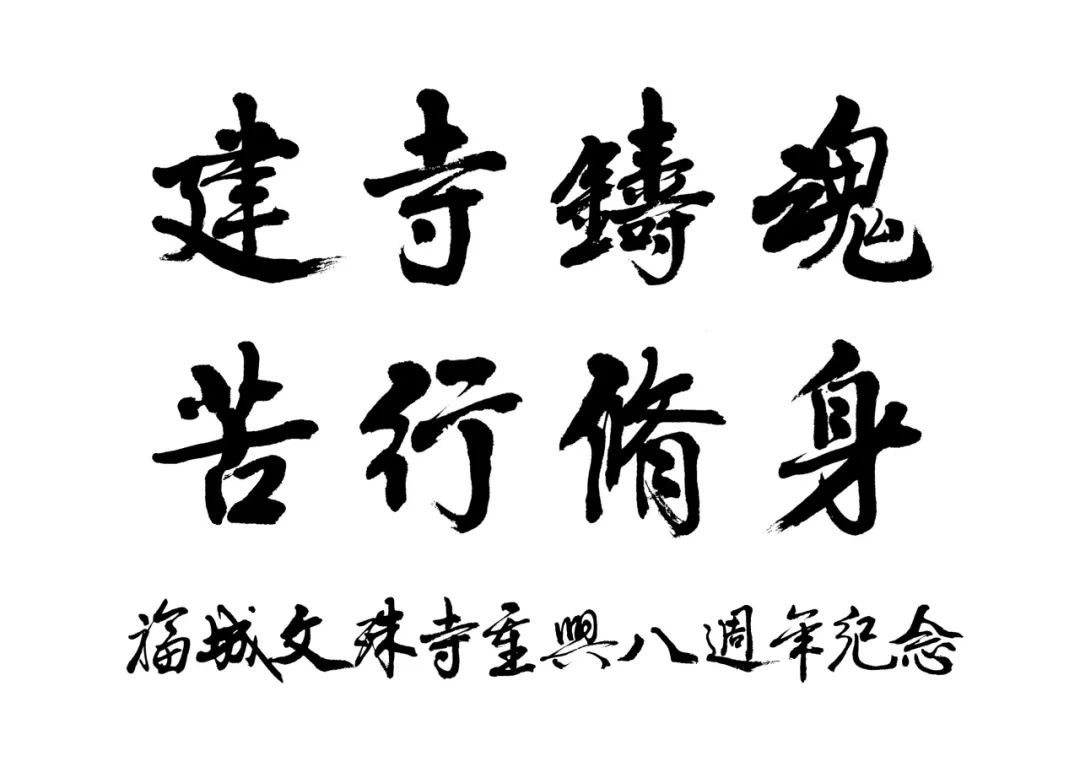 建寺鑄魂
苦行脩身
福城文殊寺重興八週年紀念